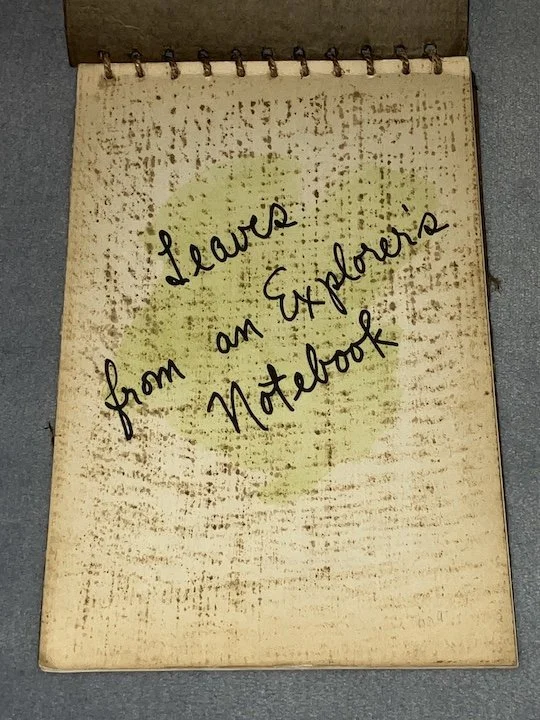 Leaves
from an Explorer's
Notebook